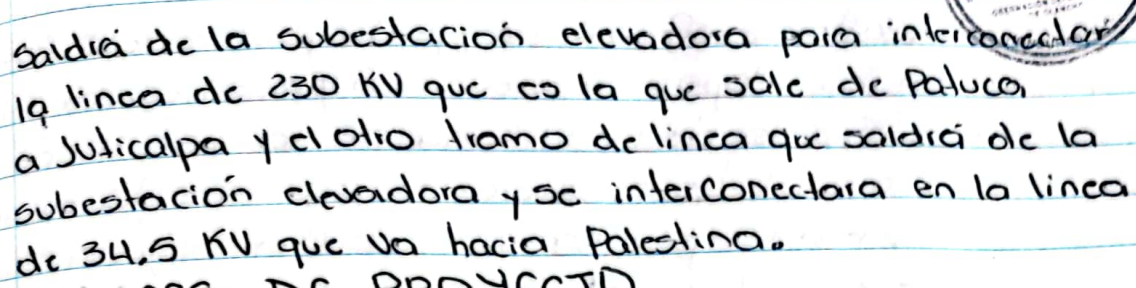 saldrá de la subestación elevadora para interconectar
la linea de 230 KV que es la que sale de Patuca
a Juticalpa y el otro tramo de linea que saldrá de la
subestación elevadora y se interconectara en la linea
de 34.5 KV que va hacia Palestina.
DE PROYECTO